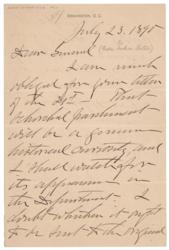 WASHINGTON, D.C.
July 23. 1895
Dear General
I am much
obliged for your letter
of the 21st. That
parchment
will be a famous
historical curiosity, and
I should watch for
its appearance in
the Department. I
doubt whether it ought
to be sent to the